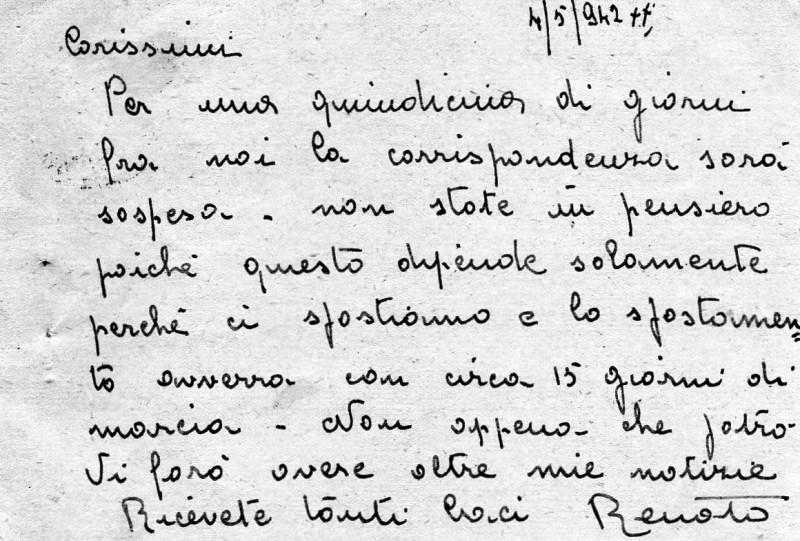 4/5/942 ++
Carissimi
Per una quindicina di giorni
fra noi la corrispondenza sará
sospesa - non state in pensiero
poiché questo dipende solamente
perché ci spostiamo e lo spostamen=
to avverra con circa 15 giorni di
marcia - Non appena che potró
Vi faró avere altre mie notizie
Ricevete tanti baci Renato